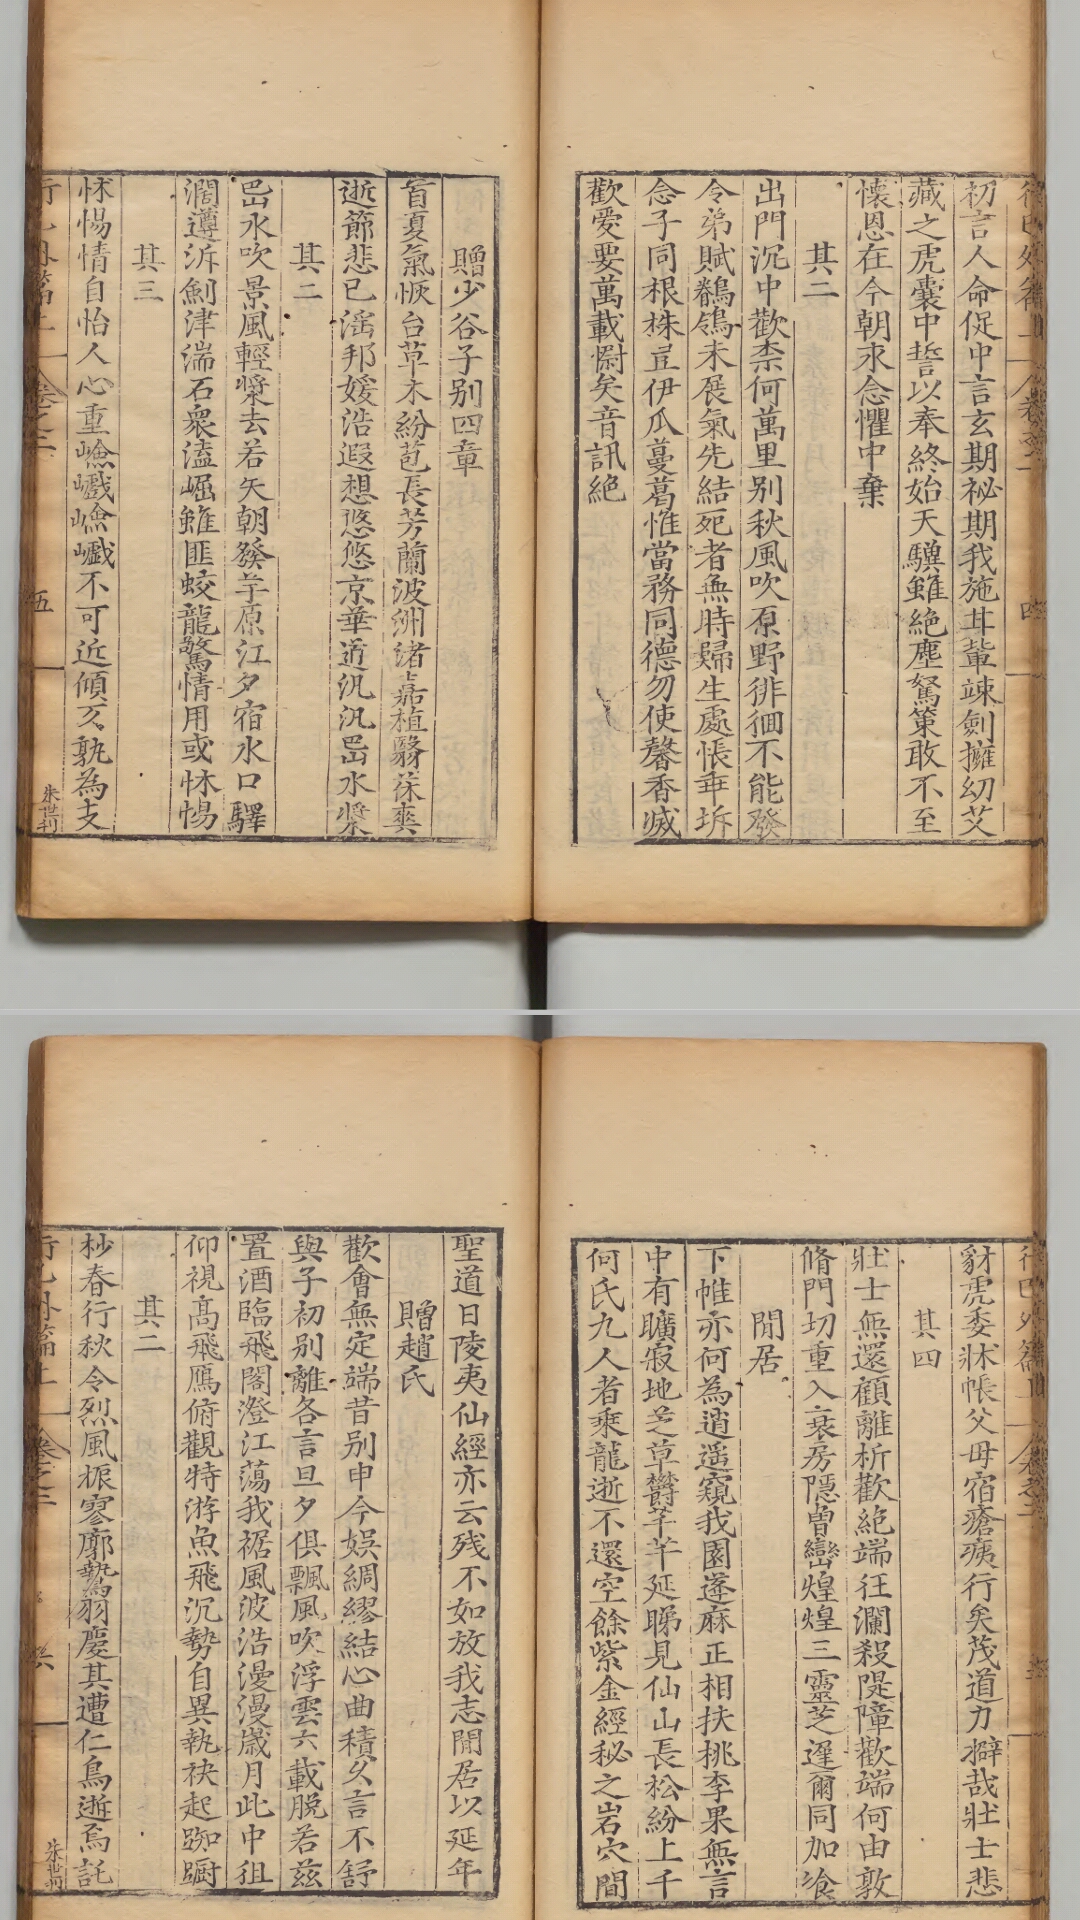 初言人命促中言玄期祕期我施耳軰竦劍擁幼艾
藏之虎囊中誓以奉終始天驥雖絶塵駑策敢不至
懐恩在今朝永念懼中棄
其二
出門沉中歡柰何萬里别秋風吹原野徘徊不能發
令弟賦鶺鴒未展氣先結死者無時歸生處悵乖坼
念子同根株豈伊瓜蔓葛惟當務同德勿使馨香滅
歡愛要萬載罻矣音訊絶
贈少谷子别四章
首夏氣恢台草木紛苞長芳蘭波洲渚嘉植翳蓀爽
逝節悲已滛邦媛浩遐想悠悠京華逌汎汎岊水槳
其二
岊水吹景風輕槳去若矢朝發芋原江夕宿水口驛
濶遵泝劍津湍石衆溘崛雖匪蛟龍驚情用或怵惕
其三
怵惕情自怡人心重嶮巇嶮巇不可近傾危孰為支
卷之二
五
朱世刊
豺虎委牀帳父母宿瘡痍行矣茂道力擗哉壯士悲
其四
壯士無還顧離析歡絶端狂瀾殺隄障歡端何由敦
脩門切重入哀房隱曾巒煌煌三靈芝遲爾同加飡
閒居
下帷亦何為逍遥窺我園蓬麻正相扶桃李果無言
中有曠寂地芝草欝芊芊延睇見仙山長松紛上千
何氏九人者乘龍逝不還空餘紫金經秘之岩穴間
聖道日陵夷仙經亦云残不如放我志閒居以延年
贈趙氏
歡會無定端昔别申今娛綢繆結心曲積久言不舒
與子初别離各言旦夕俱飄風吹浮雲六載脱若兹
置酒臨飛閣澄江蕩我裾風波浩漫漫歲月此中徂
仰視高飛鴈俯觀特游魚飛沉勢自異執袂起踟躕
其二
杪春行秋令烈風振寥廓鷙羽慶其遭仁鳥逝焉託
卷之二
朱世刊